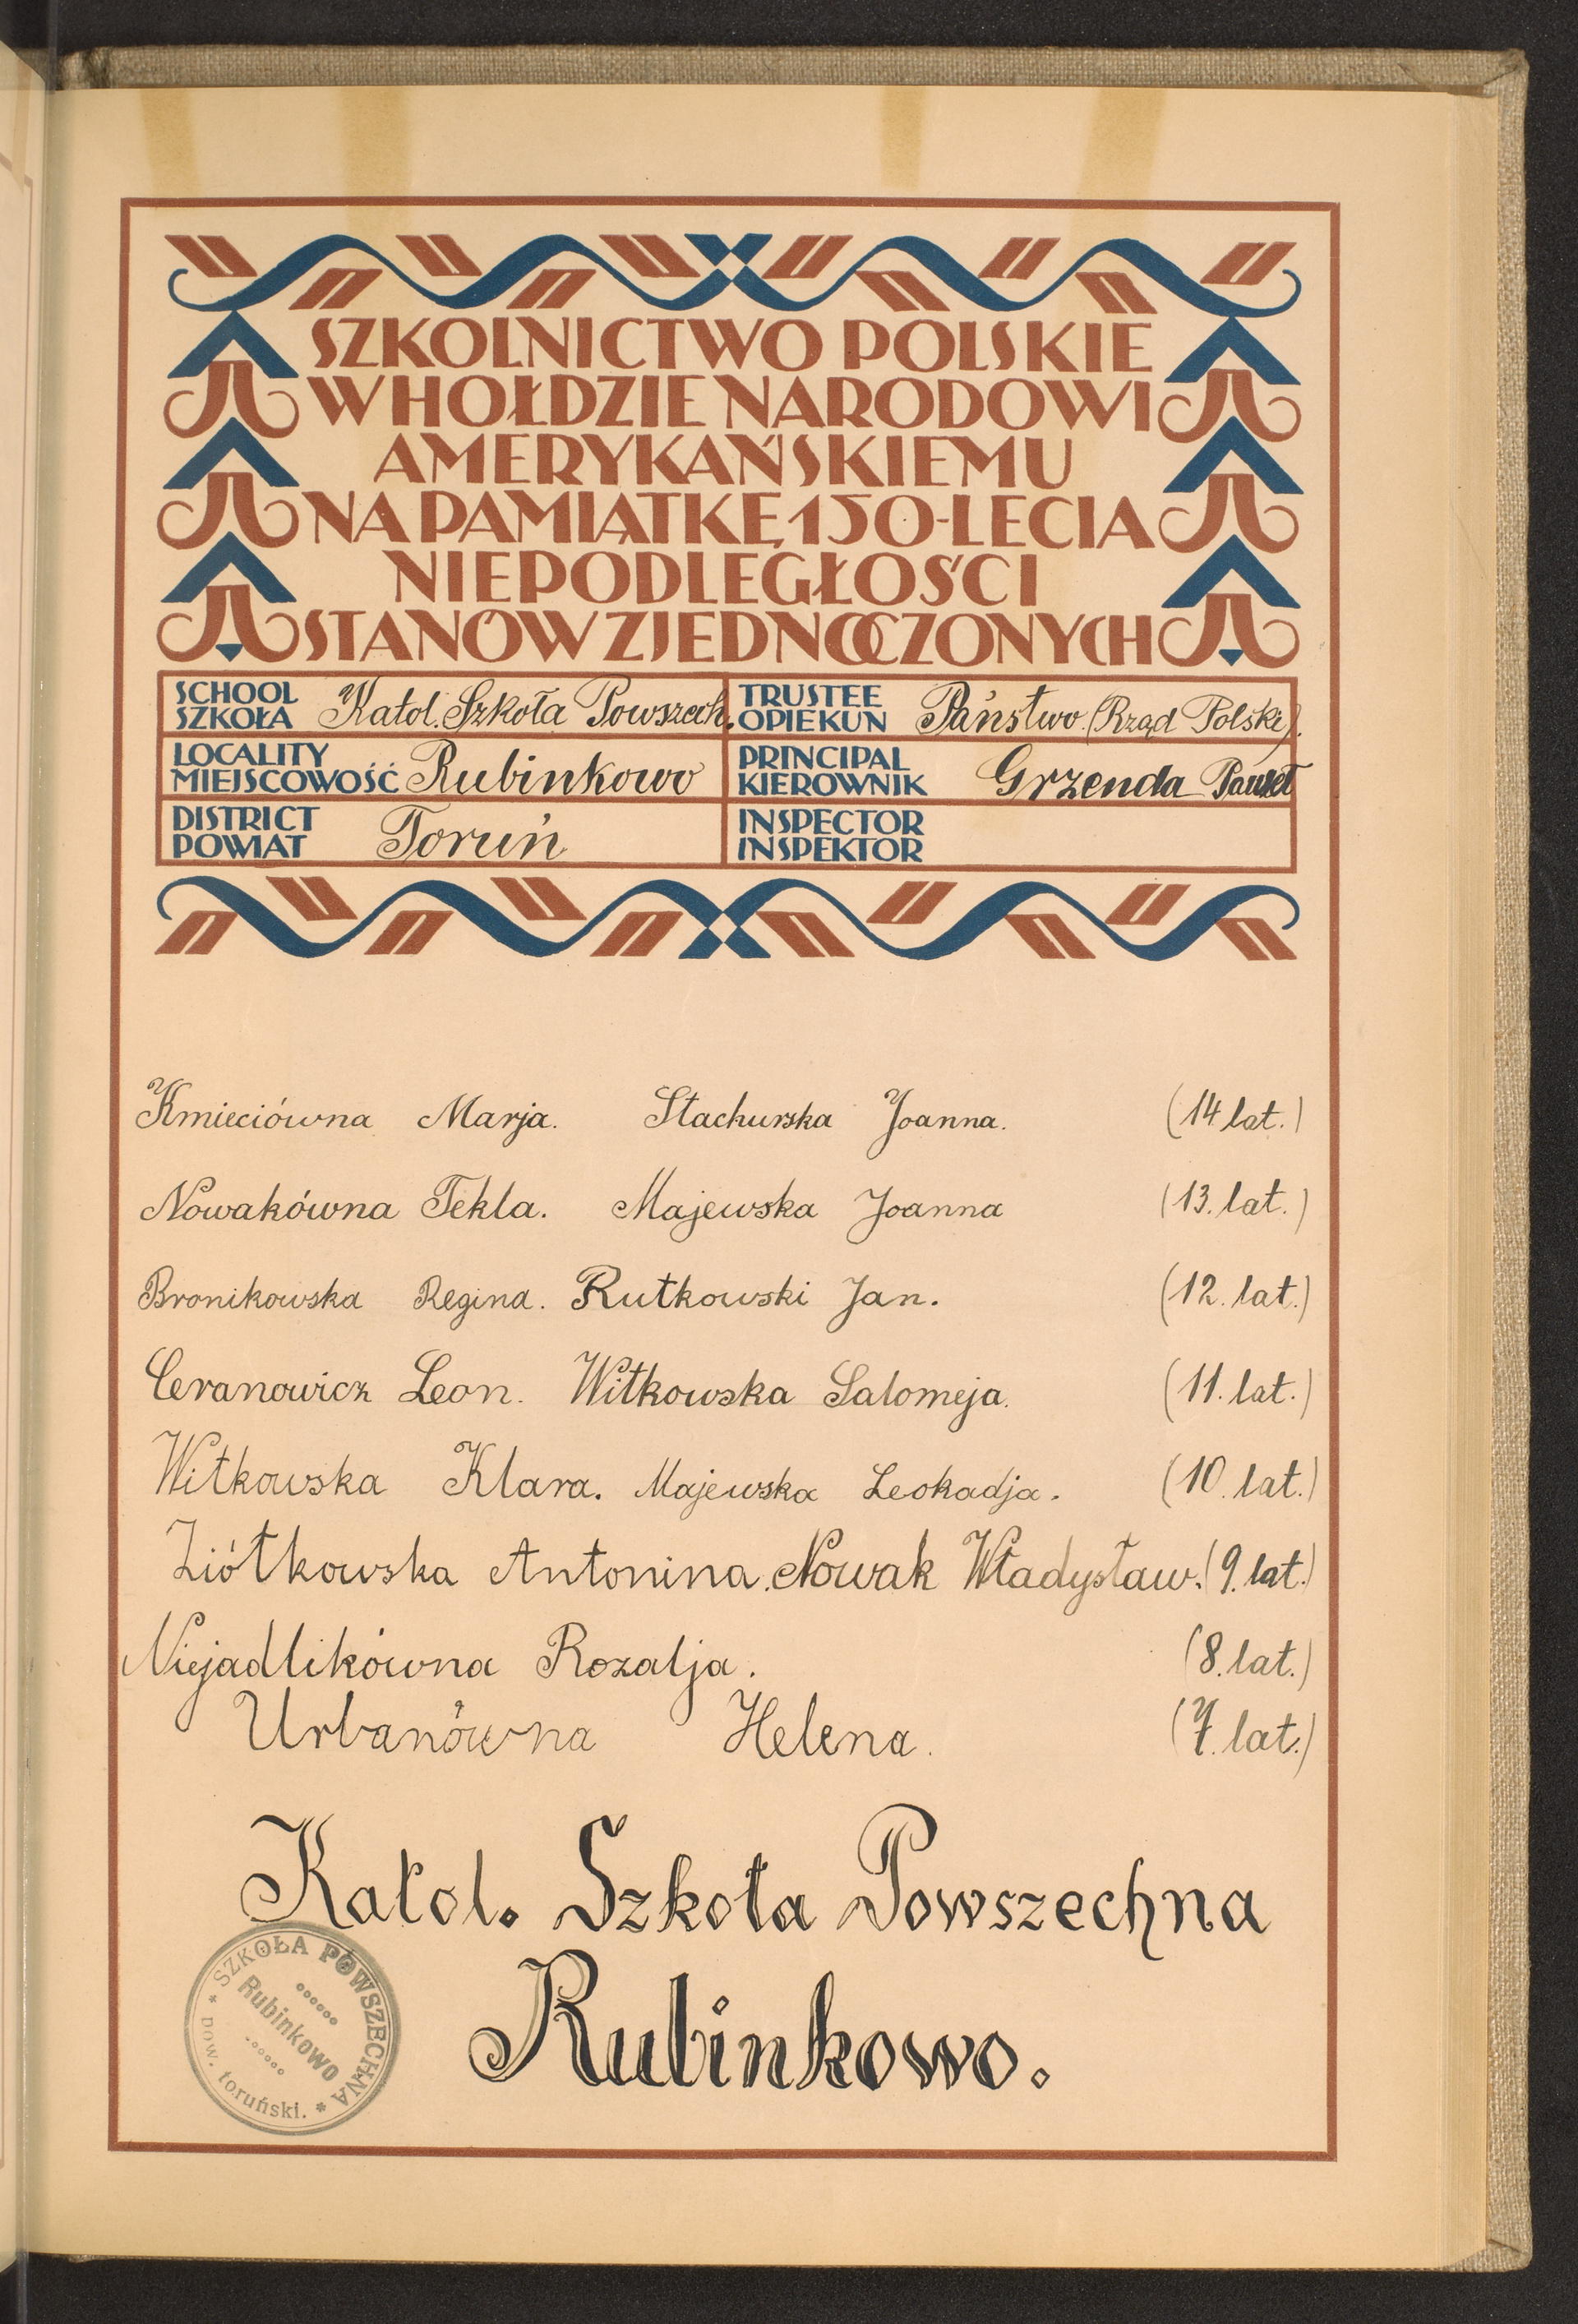 SZKOLNICTWO POLSKIE
W HOŁDZIE NARODOWI
AMERYKAŃSKIEMU
NA PAMIĄTKĘ 150-LECIA
NIEPODLEGŁOŚCI
STANÓW ZJEDNOCZONYCH
SCHOOL
SZKOŁA Katol. Szkoła Powszech.
TRUSTEE
OPIEKUN Państwo (Rząd Polski).
LOCALITY
MIEJSCOWOŚĆ Rubinkowo
PRINCIPAL
KIEROWNIK Grzenda Paweł
DISTRICT
POWIAT Toruń
INSPECTOR
INSPEKTOR
Kmieciówna Marja. Stachurska Joanna. (14 lat.)
Nowakówna Tekla. Majewska Joanna (13. lat.)
Bronikowska Regina. Rutkowski Jan. (12. lat.)
Ceranowicz Leon. Witkowska Salomeja. (11. lat.)
Witkowska Klara. Majewska Leokadja. (10. lat.)
Ziółkowska Antonina. Nowak Władysław. (9. lat.)
Niejadlikówna Rozalja. (8. lat.)
Urbanówna Helena. (7. lat.)
Katol. Szkoła Powszechna
Rubinkowo.
SZKOŁA POWSZECHNA
Rubinkowo
* pow. toruński. *